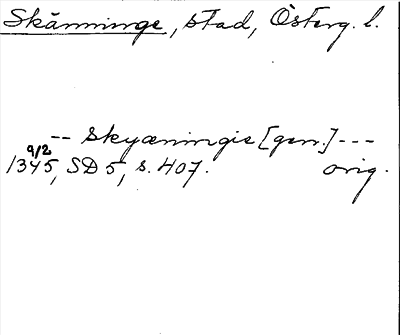 Skänninge, stad, Österg. l.
-- skyæningie [gen.] ---
9/2
1345, SD 5, s. 407. orig.